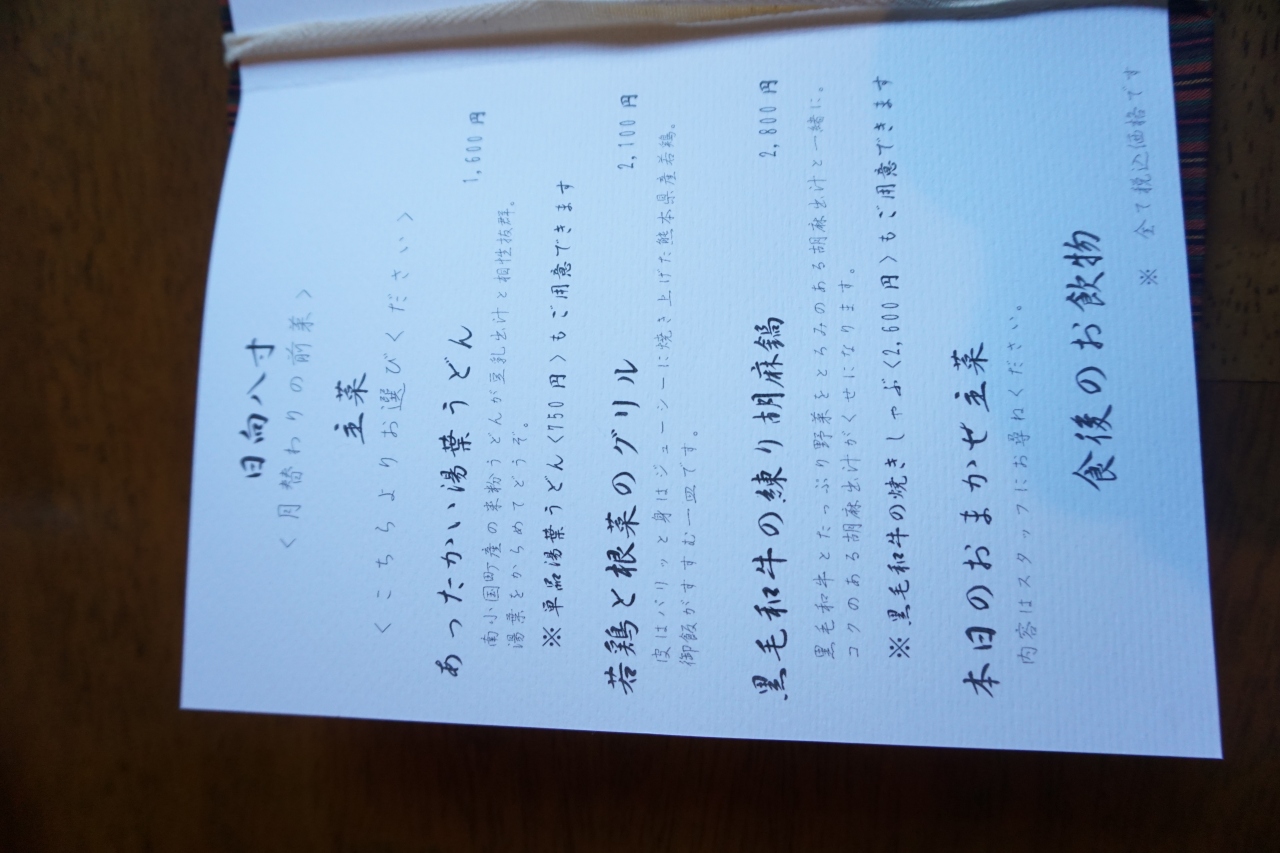 日向八寸
〈月替わりの前菜〉
主菜
〈こちらよりお選びください〉
あったかい湯葉うどん 1,600円
南小国町産の米粉うどんが豆乳出汁と相性抜群。
湯葉をからめてどうぞ。
※単品湯葉うどん〈750円〉もご用意できます
若鶏と根菜のグリル 2,100円
皮はパリッと身はジューシーに焼き上げた熊本県産若鶏。
御飯がすすむ一皿です。
黒毛和牛の練り胡麻鍋 2,800円
黒毛和牛とたっぷり野菜をとろみのある胡麻出汁と一緒に。
コクのある胡麻出汁がくせになります。
※黒毛和牛の焼きしゃぶ〈2,600円〉もご用意できます
本日のおまかせ主菜
内容はスタッフにお尋ねください。
食後のお飲物
※ 全て税込価格です